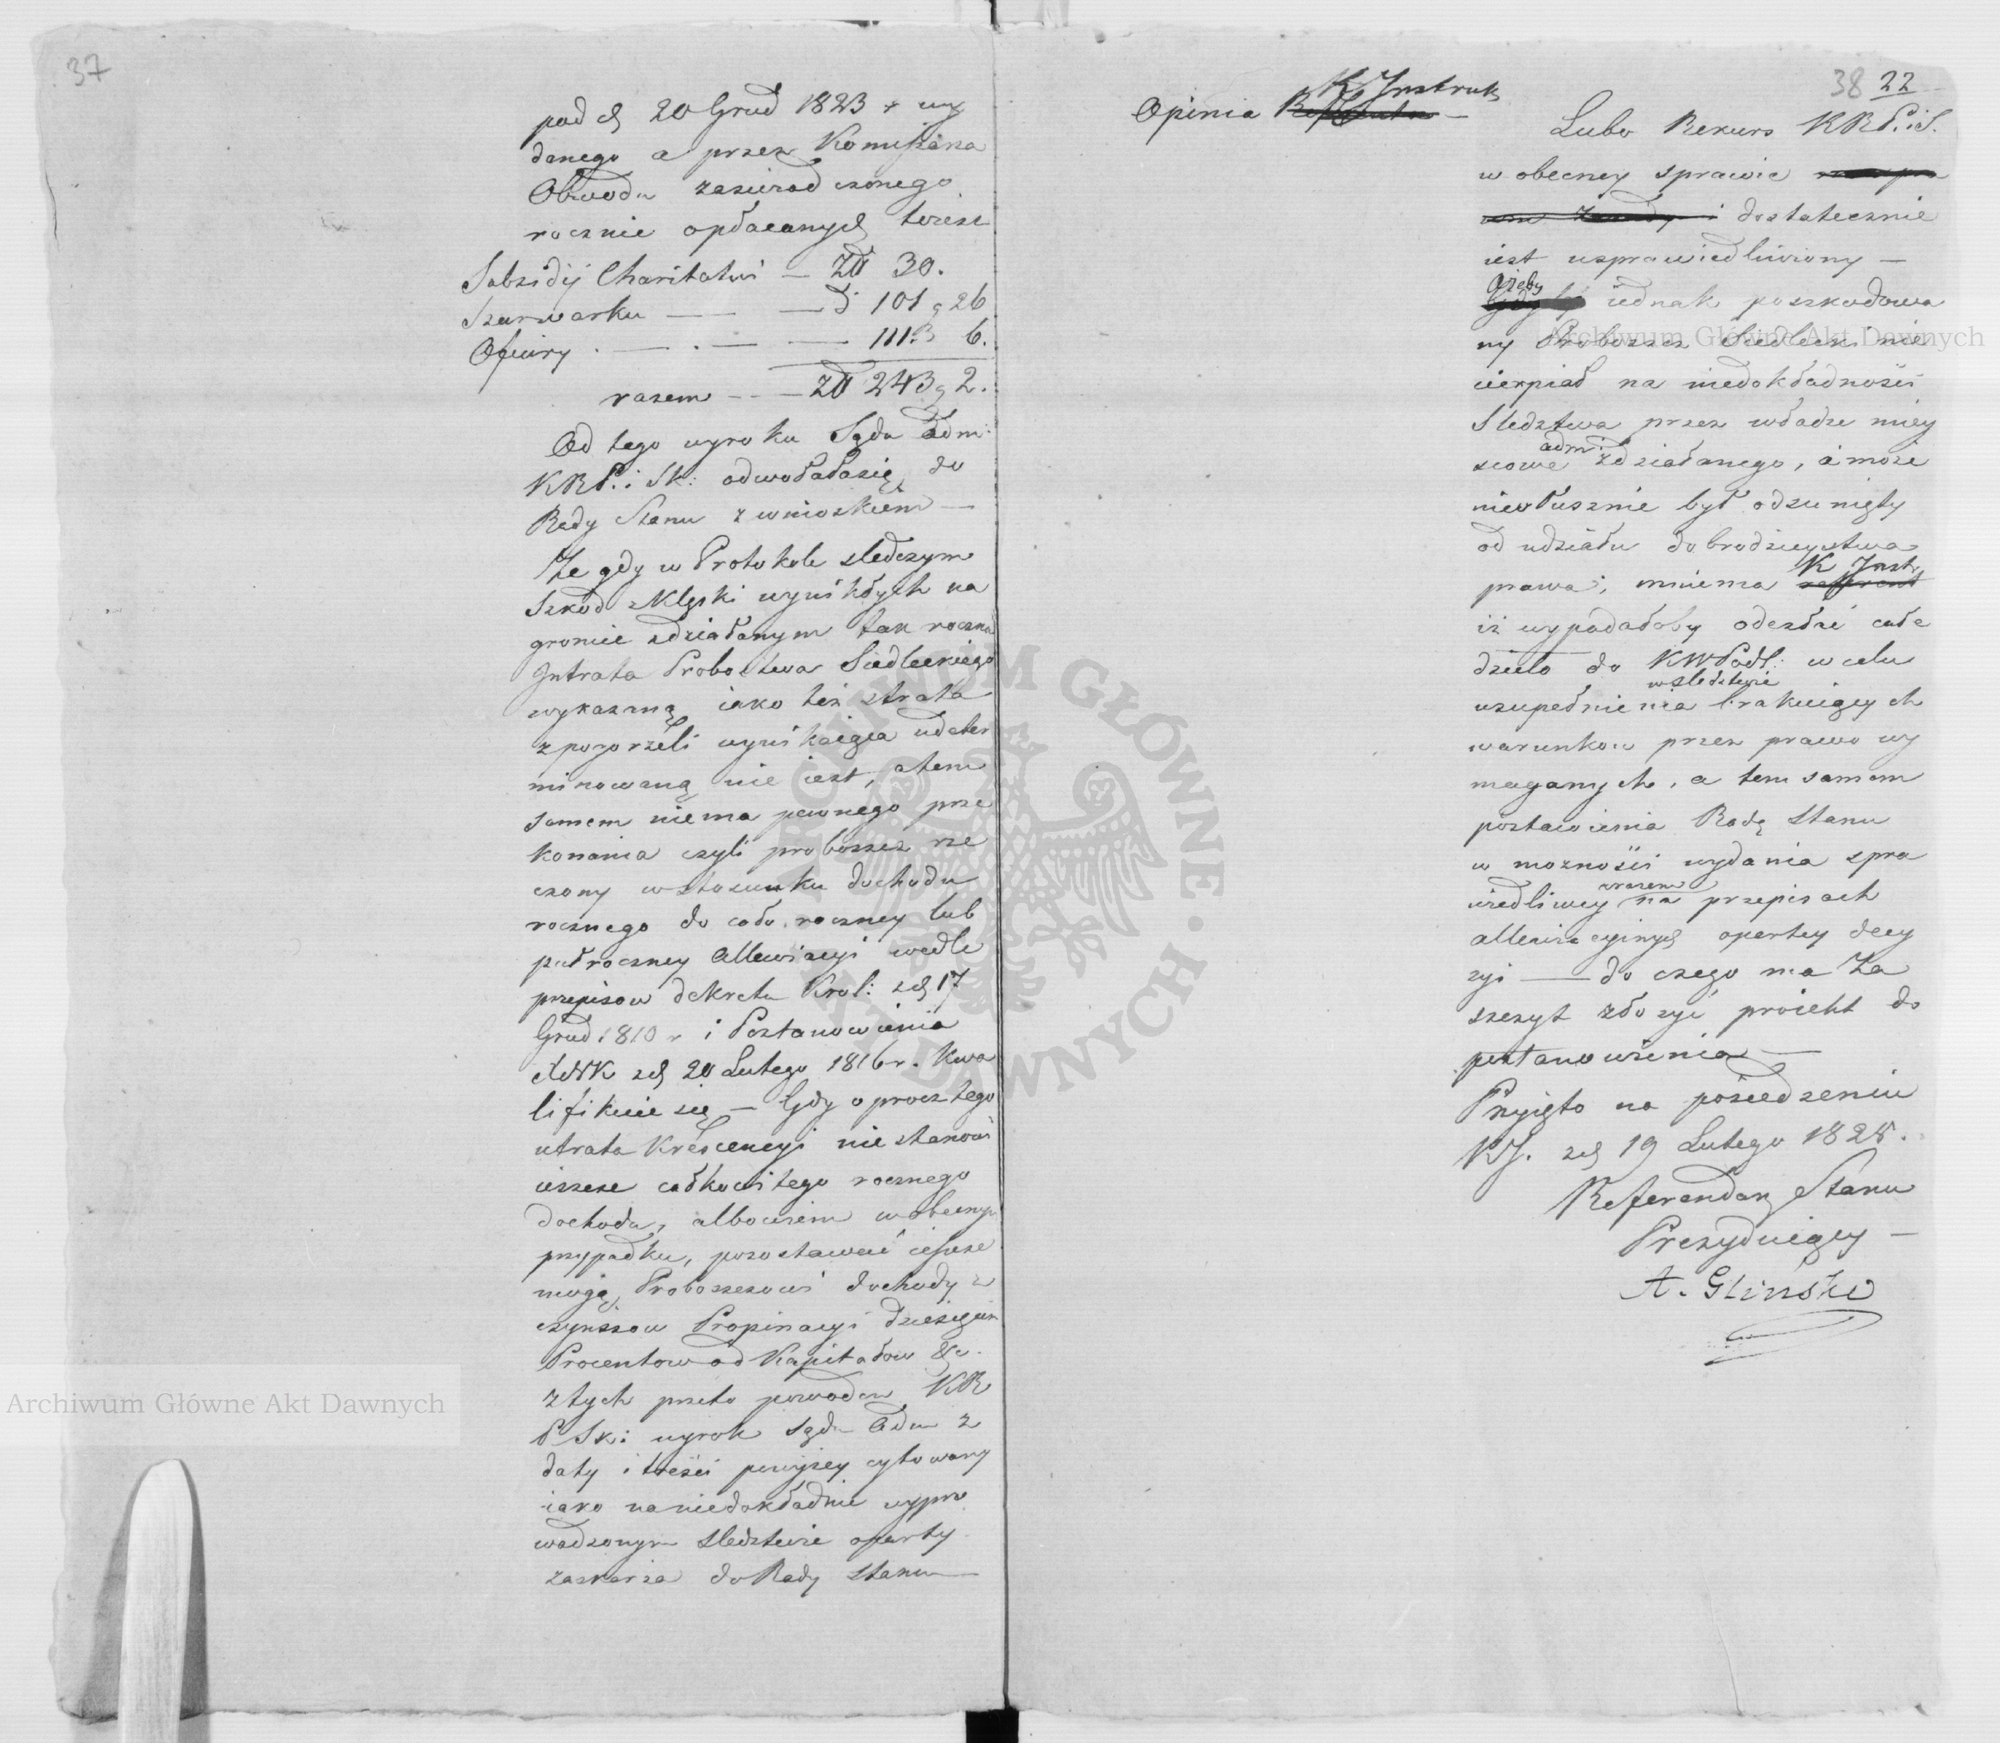 37
pod d. 20 Grud 1823 r wy
danego a przez Komissarza
Obwodu zaswiadczonego
rocznie opłacanych toiest
Subsidij Charitativi — Zł 30.
Szarwarku — — d. 101 g 26
Ofiary . — . — — 111. 6.
razem - - - Zł 243 g 2.
Od tego wyroku Sądu Adm:
KRP. i Sk: odwołała się do
Rady Stanu z wnioskiem —
Że gdy w Protokole sledczym
Szkod z Klęski wynikłych na
gruncie zdziałanym tak roczna
Intrata Probostwa Siedleckiego
wykazaną iako też strata
z pogorzeli wynikaiąca udeter
minowaną nie iest, a tem
samem niema pewnego prze
konania czyli proboszcz rze
czony w stosunku dochodu
rocznego do cało roczney lub
półroczney Allewiacyi wedle
przepisow dekretu Krol: z d. 17
Grud 1810 r i Postanowienia
XNK z d. 20 Lutego 1816 r. Kwa
lifikuie się — Gdy oprocz tego
utrata Krescencyi nie stanowi
ieszcze całkowitego rocznego
dochodu, albowiem w obecnym
przypadku, pozostawać ieszcze
mogą Proboszczowi dochody z
czynszow Propinacyi Dziesięcin
Procentow od Kapitałow &c.
z tych przeto powodow KR
P i Sk: wyrok Sądu Adm z
daty i treści powyżey cytowany
iako na niedokładnie wypro
wadzonym sledztwie oparty
zaskarża do Rady Stanu —
38 22
K Instruk
Opinia —
Lubo Rekurs KRP. i S.
w obecney sprawie
i dostatecznie
iest usprawiedliwiony —
ażeby
iednak poszkodowa
ny Proboszcz Siedlecki nie
cierpiał na niedokładności
Sledztwa przez władze miey
adm:
scowe zdziałanego, a może
niesłusznie był odsunięty
od udziału dobrodzieystwa
K Inst.
prawa; mniema referent
iż wypadałoby odesłać całe
dzieło do KWPodl: w celu
w sledztwie
uzupełnienia brakuiących
warunkow przez prawo wy
maganych, a tem samem
postawienia Radę Stanu
w możności wydania spra
wiedliwey na przepisach
allewiacyinych opartey decy
zyi — do czego ma za
szczyt złożyć proiekt do
postanowienia —
Przyięto na posiedzeniu
KJ. z d. 19 Lutego 1825.
Referendarz Stanu
Prezyduiący —
A. Glinski
Archiwum Główne Akt Dawnych
Archiwum Główne Akt Dawnych
ARCHIWUM GŁÓWNE AKT DAWNYCH